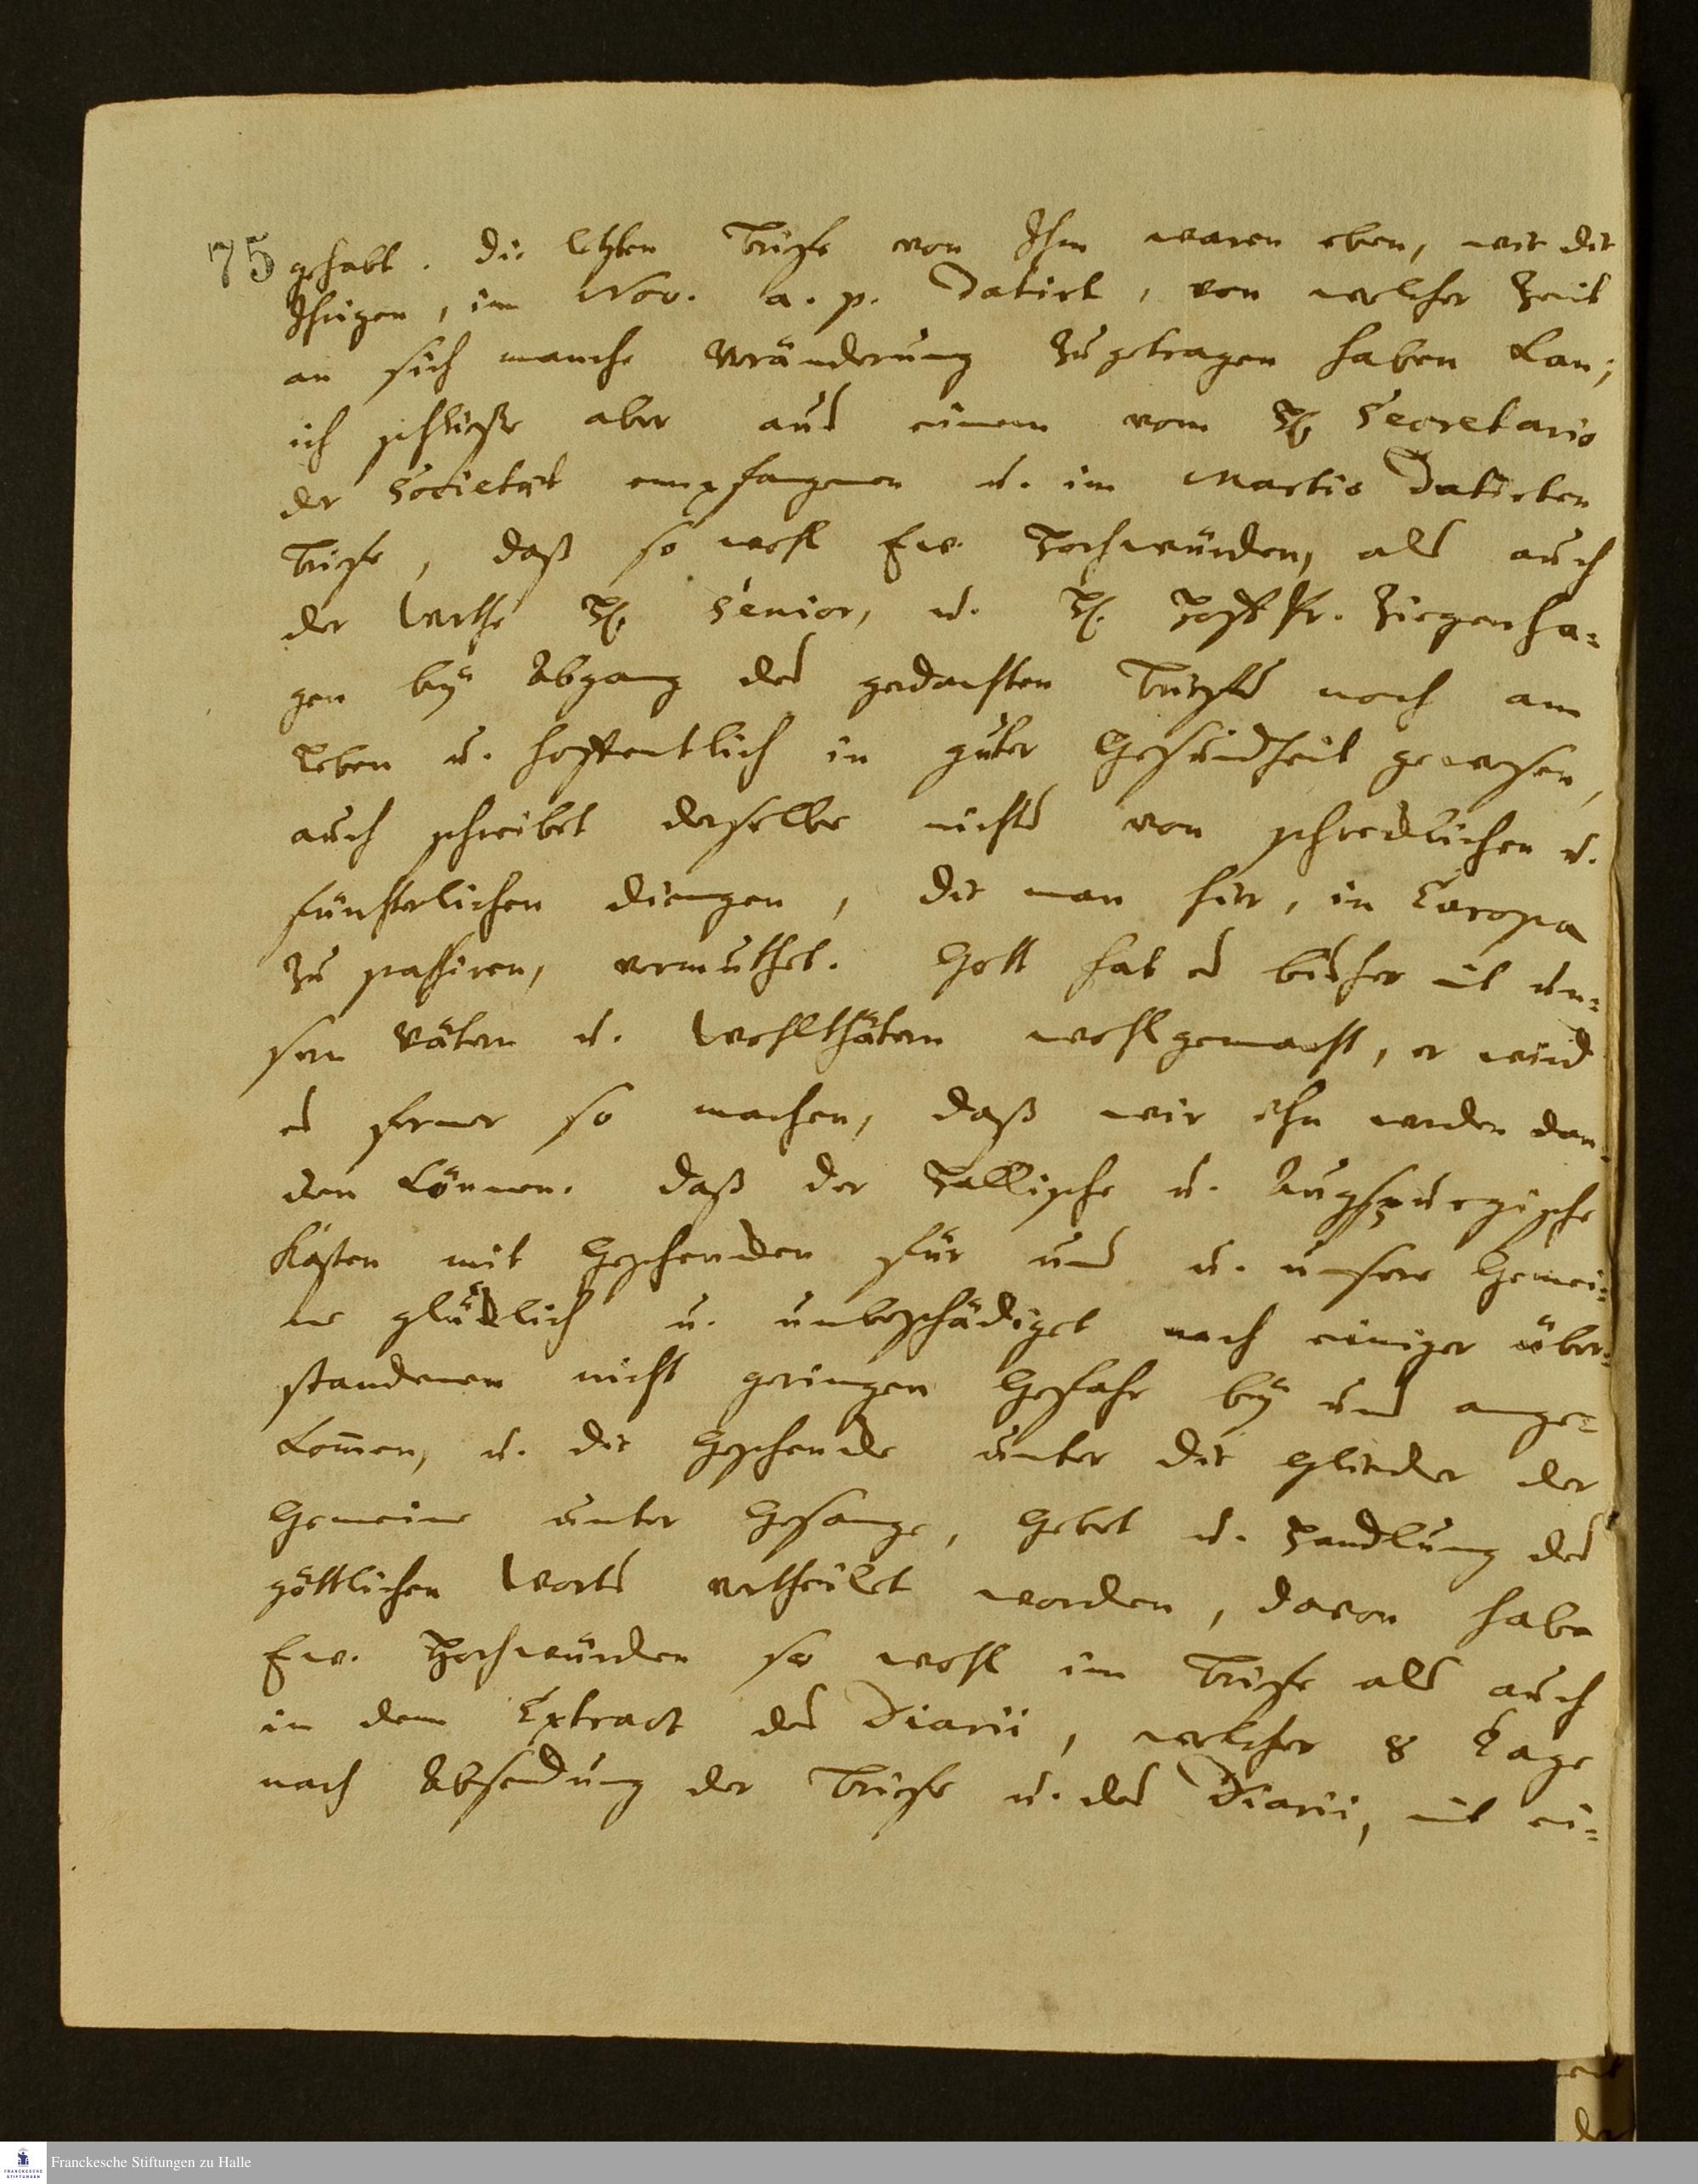 75 gehabt. Die letzten Briefe von Ihm waren eben, wie die
Ihrigen, im Nov. a. p. datirt, von welcher Zeit
an sich manche Veränderung zugetragen haben kan;
ich schließe aber aus einem vom H. Secretario
der Societät empfangenen u. im Martio datirten
Briefe, daß so wohl Ew. Hochwürden, als auch
der werthe H. Senior, u. H. HofPr. Ziegenha-
gen bey Abgang des gedachten Briefes noch am
Leben u. hoffentlich in guter Gesundheit gewesen,
auch schreibet derselbe nichts von schrecklichen u.
fürchterlichen Dingen, die man hier, in Europa
zu passiren, vermuthet. Gott hat es bisher mit un-
sern Vätern u. Wohlthätern wohl gemacht, er wird
es ferner so machen, daß wir ihn werden dan-
cken können. Daß der Hallische u. Augspurgische
Kasten mit Geschencken für uns u. unsere Gemei-
ne glücklich u. unbeschädiget nach einiger über-
standenen nicht geringen Gefahr bey uns ange-
kommen, u. die Geschencke unter die Glieder der
Gemeine unter Gesange, Gebet u. Handlung des
göttlichen Worts vertheilet worden, davon habe
Ew. Hochwürden so wohl im Briefe als auch
in dem Extract des Diarii, welcher 8 Tage
nach Absendung der Briefe u. des Diarii, mit ei-
Franckesche Stiftungen zu Halle
FRANCKESCHE
STIFTUNGEN